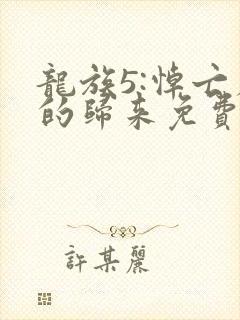 龍族5:悼亡
的歸來免費
許某麗